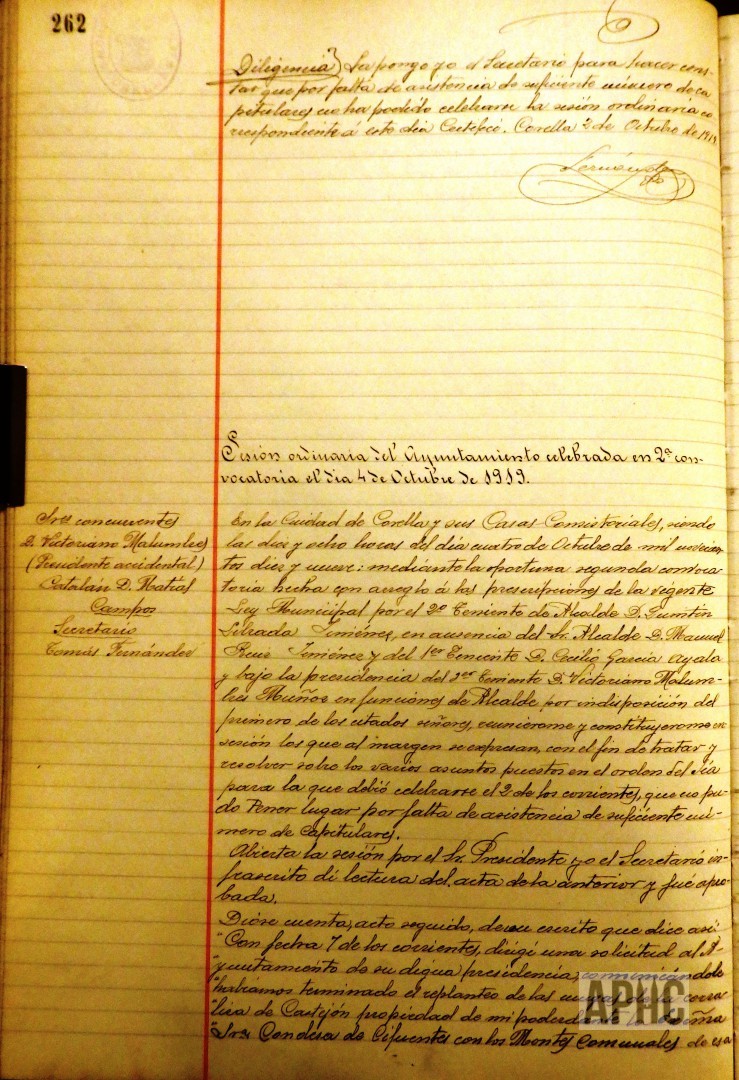 262
Diligencia) La pongo yo el Secretario para hacer cons-
tar que por falta de asistencia de suficiente número de ca
pitulares no ha podido celebrarse la sesión ordinaria co-
rrespondiente á este día Certifico. Corella 2 de Octubre de 1919
Fernández
Sesión ordinaria del Ayuntamiento celebrada en 2ª con-
vocatoria el día 4 de Octubre de 1919.
Sres concurrentes
D. Victoriano Malumbres
(Presidente accidental)
Catalán D. Matías
Campos
Secretario
Tomás Fernández
En la Ciudad de Corella y sus Casas Consistoriales, siendo
las diez y ocho horas del día cuatro de Octubre de mil novecien-
tos diez y nueve: mediante la oportuna segunda convoca
toria hecha con arreglo á las prescripciones de la vigente
Ley Municipal por el 2º Teniente de Alcalde D.
Jiménez, en ausencia del Sr. Alcalde D. Manuel
Jiménez y del 1er Teniente D. Cecilio García Ayala
y bajo la presidencia del Teniente D. Victoriano Malum-
bres Muñoz en funciones de Alcalde por indisposición del
primero de los citados señores, reuniéronse y constituyéronse en
sesión los que al margen se expresan, con el fin de tratar y
resolver sobre los varios asuntos puestos en el orden del día
para la que debió celebrarse el 2 de los corrientes, que no pu-
do tener lugar por falta de asistencia de suficiente nú-
mero de Capitulares.
Abierta la sesión por el Sr. Presidente yo el Secretario in-
frascrito dí lectura del acta de la anterior y fué apro-
bada.
Dióse cuenta, acto seguido, de un escrito que dice así
"Con fecha 7 de los corrientes, dirigí una solicitud al A-
"yuntamiento de su digna presidencia, comunicándole
"habíamos terminado el replanteo de las mugas de la corra
"liza de Castejón propiedad de mi poderdante la Señora
"Sra Condesa de Cifuentes con los Montes Comunales de esa
APHC